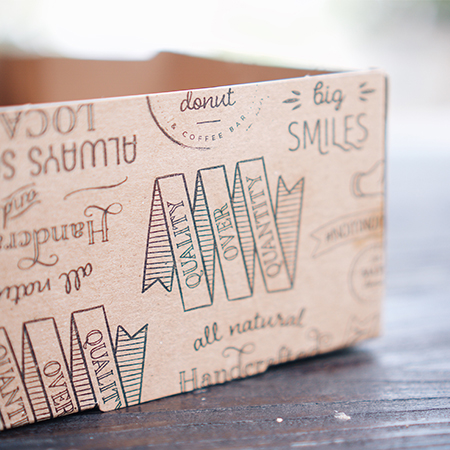 donut
& COFFEE BAR
big
SMILES
LOCA
ALWAYS S
and
Handcra
all natu
QUALITY
OVER
QUANTITY
all natural
Handcraf
QUALITY
OVER
QUANTI